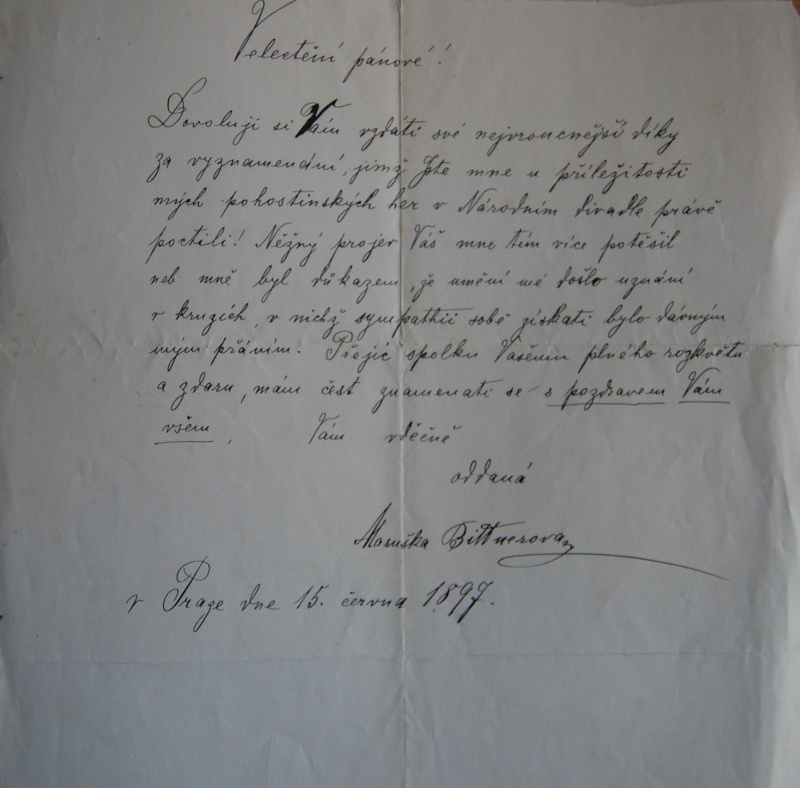 Velectění pánové!
Dovoluji si Vám vzdáti své nejvroucnější díky
za vyznamenání, jimž Jste mne u příležitosti
mých pohostinských her v Národním divadle právě
poctili! Něžný projev Váš mne tím více potěšil
neb mně byl důkazem, že umění mé došlo uznání
v kruzích, v nichž sympathii sobě získati bylo dávným
mým přáním. Přejíc spolku Vašemu plného rozkvětu
a zdaru, mám čest znamenati se s pozdravem Vám
všem, Vám vděčně
oddaná
Maruška Bittnerova
v Praze dne 15. června 1897.